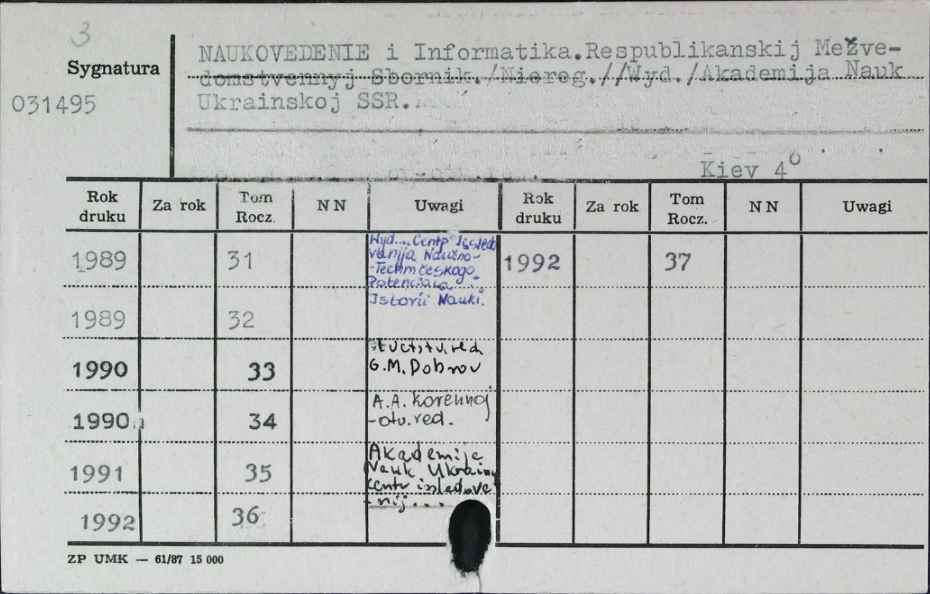 3
Sygnatura
031495
NAUKOVEDENIE i Informatika.Respublikanskij Mežve-
domstvennyj Sbornik./Niereg.//Wyd./Akademija Nauk
Ukrainskoj SSR.
Kiev 4°
Rok druku Za rok Tom Rocz. NN Uwagi Rok druku Za rok Tom Rocz. NN Uwagi
1989 31 Wyd... Centr Issled
Naučno-
-Techničeskogo
Potenciala
Istorii Nauki.
1992 37
1989 32
1990 33
G.M. Dobrov
1990 34 A.A. Korennoj
-otv.red.
1991 35 Akademija
Nauk Ukrainy
centr issledova
-nij...
1992 36
ZP UMK — 61/87 15 000